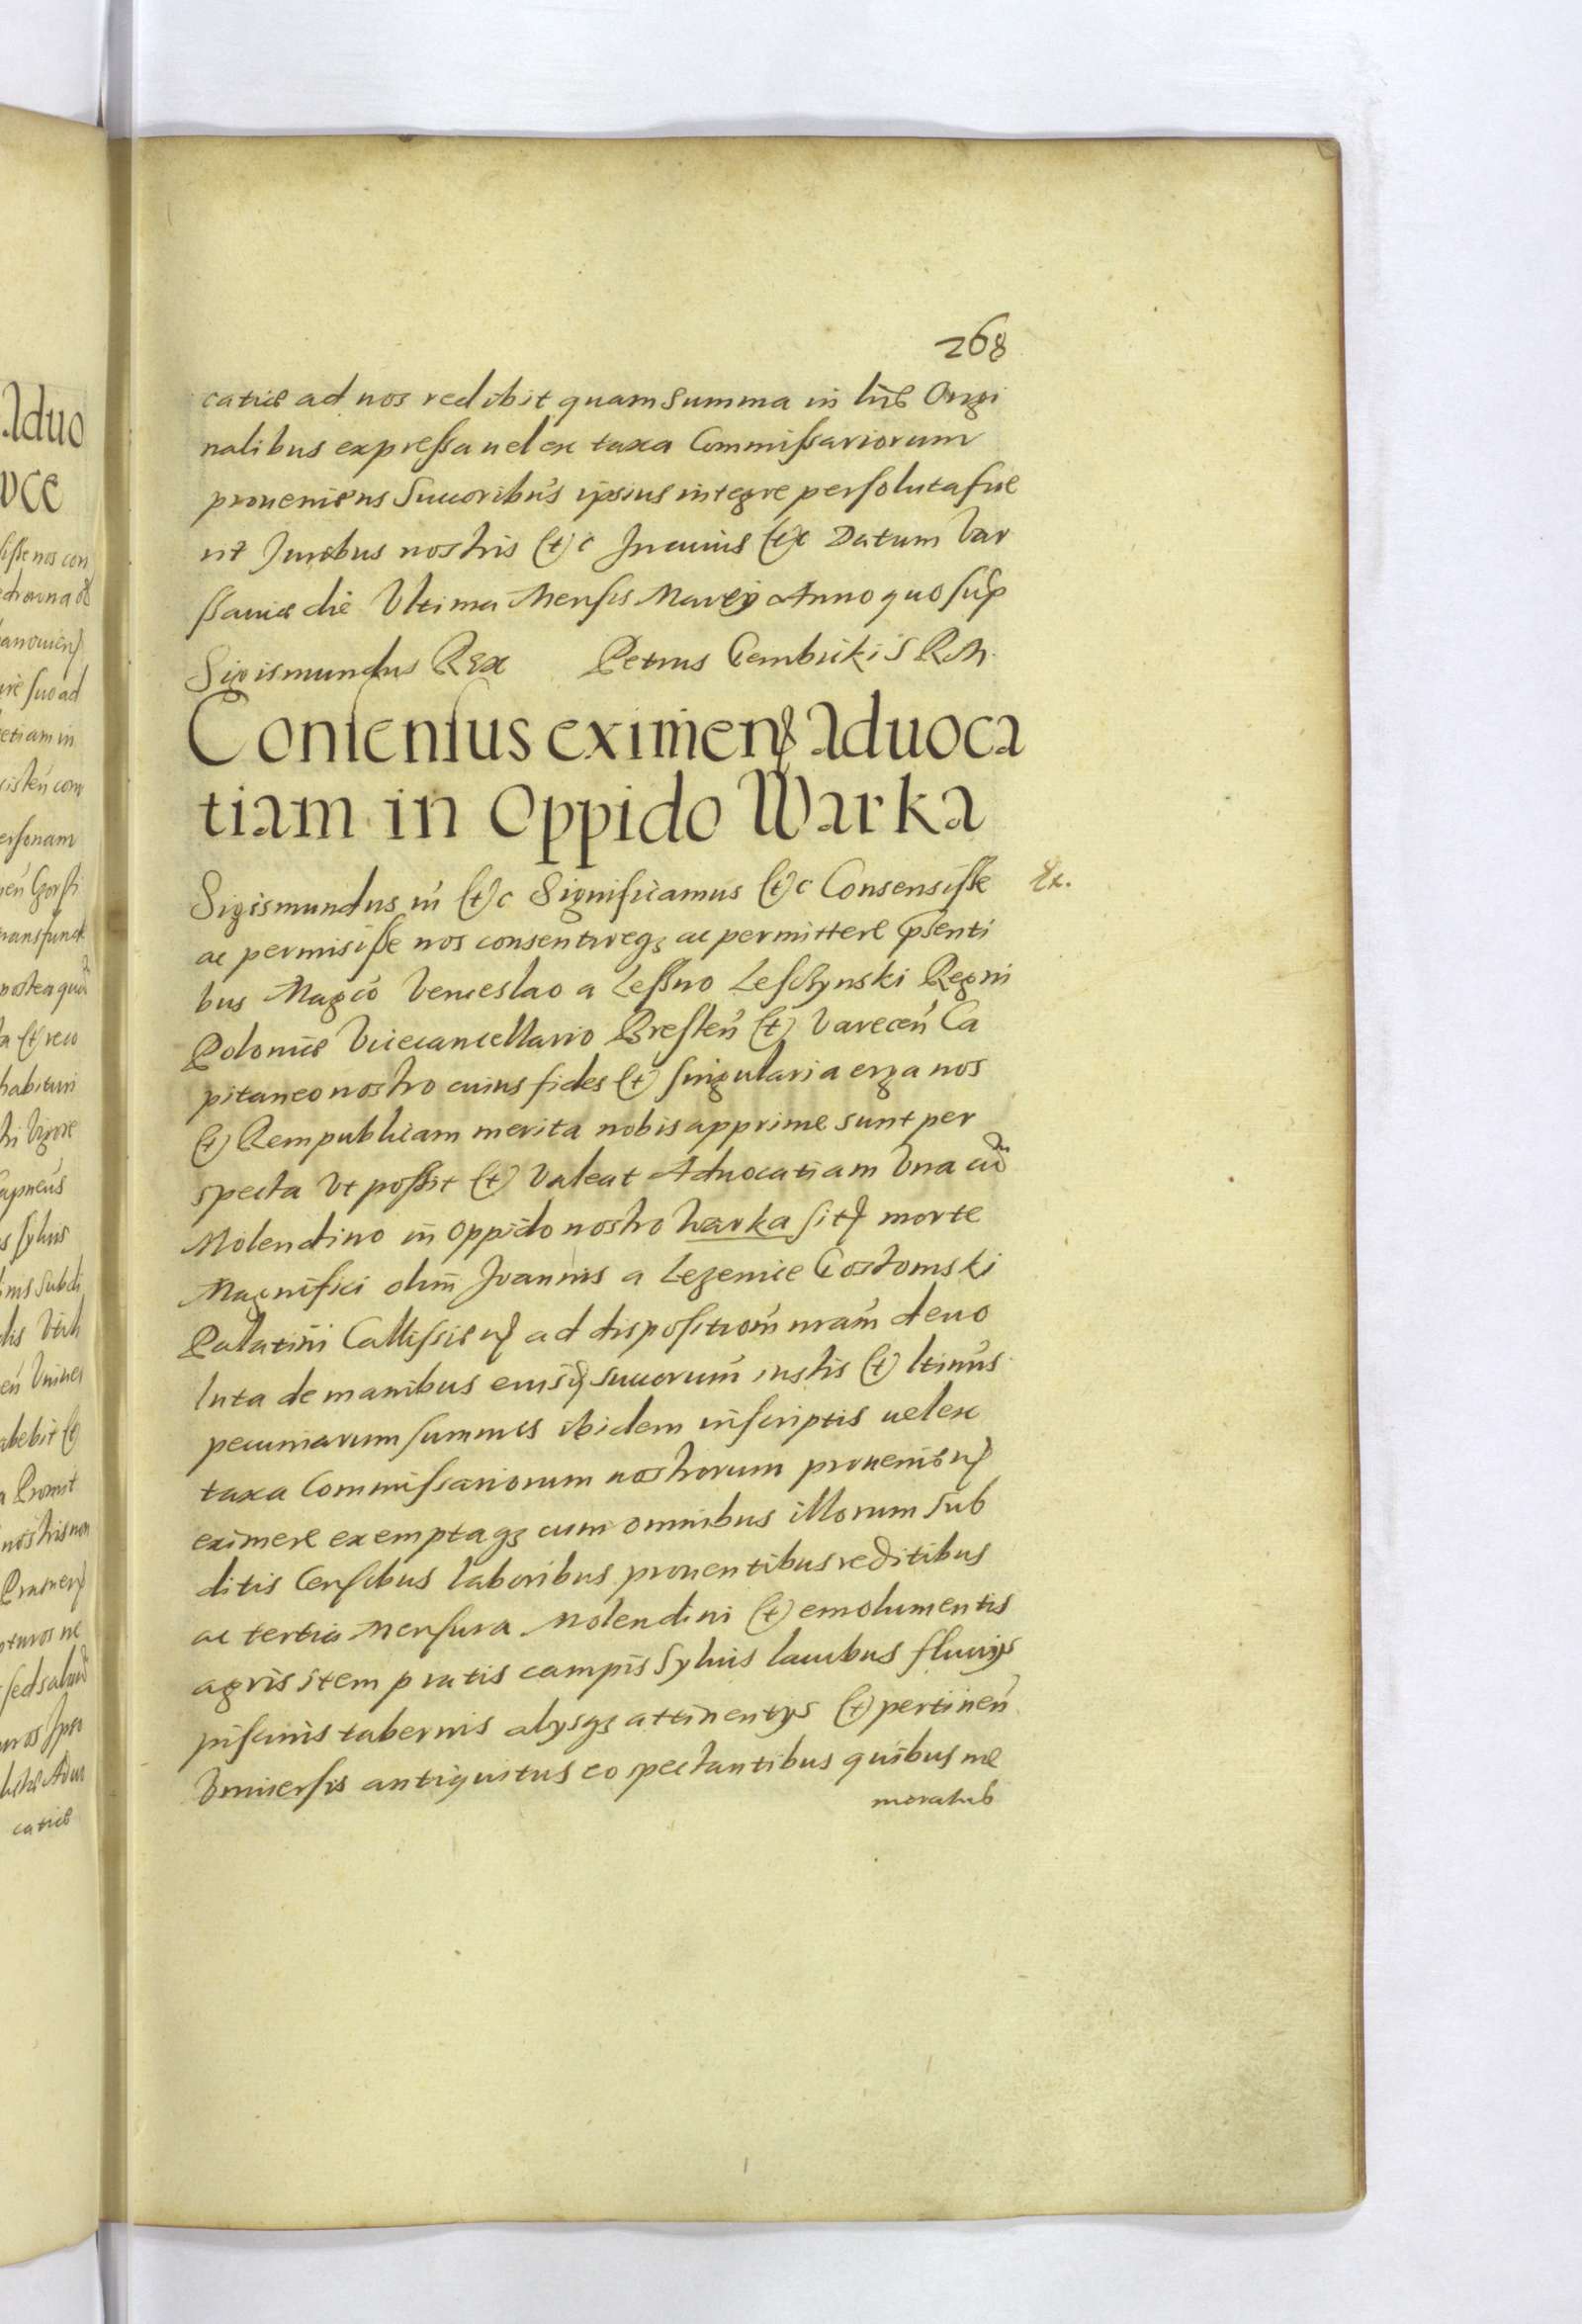 268
catiæ ad nos redibit quam summa in lrīs Origi
nalibus expressa uel ex taxa Commissariorum
proueniens Succoribus ipsius integre persoluta fue
rit Juribus nostris etc Jn cuius etc Datum Var
ssauiæ die Vltima Mensis Marcÿ Anno quo sup
Sigismundus Rex Petrus Gembicki S R M.
Consensus eximen Aduoca
tiam in Oppido Warka
Sigismundus iii etc Significamus etc Consensisse
ac permisisse nos consentireq ac permittere psenti
bus Magco Venceslao a Lessno Lesczynski Regni
Poloniæ Vicecancellario Bresten et Varecen Ca
pitaneo nostro cuius fides et singularia erga nos
et Rempublicam merita nobis apprime sunt per
specta Vt possit et Valeat Aduocatiam Vna cū
Molendino in oppido nostro Warka sit morte
Magnifici olim Joannis a Lezenice Gostomski
Palatini Callissien ad dispositiom nram deuo
luta de manibus eiusd succorum iustis et ltimis
pecuniarum summis ibidem inscriptis uel ex
taxa Commissariorum nostrorum prouenien
eximere exemptaq cum omnibus illorum sub
ditis Censibus laboribus prouentibus reditibus
ac tertia Mensura Molendini et emolumentis
agris item pratis campis Syluis lacubus fluuijs
piscinis tabernis alysq attinentys et pertinen
Vniuersis antiquitus eo spectantibus quibus me
moratus